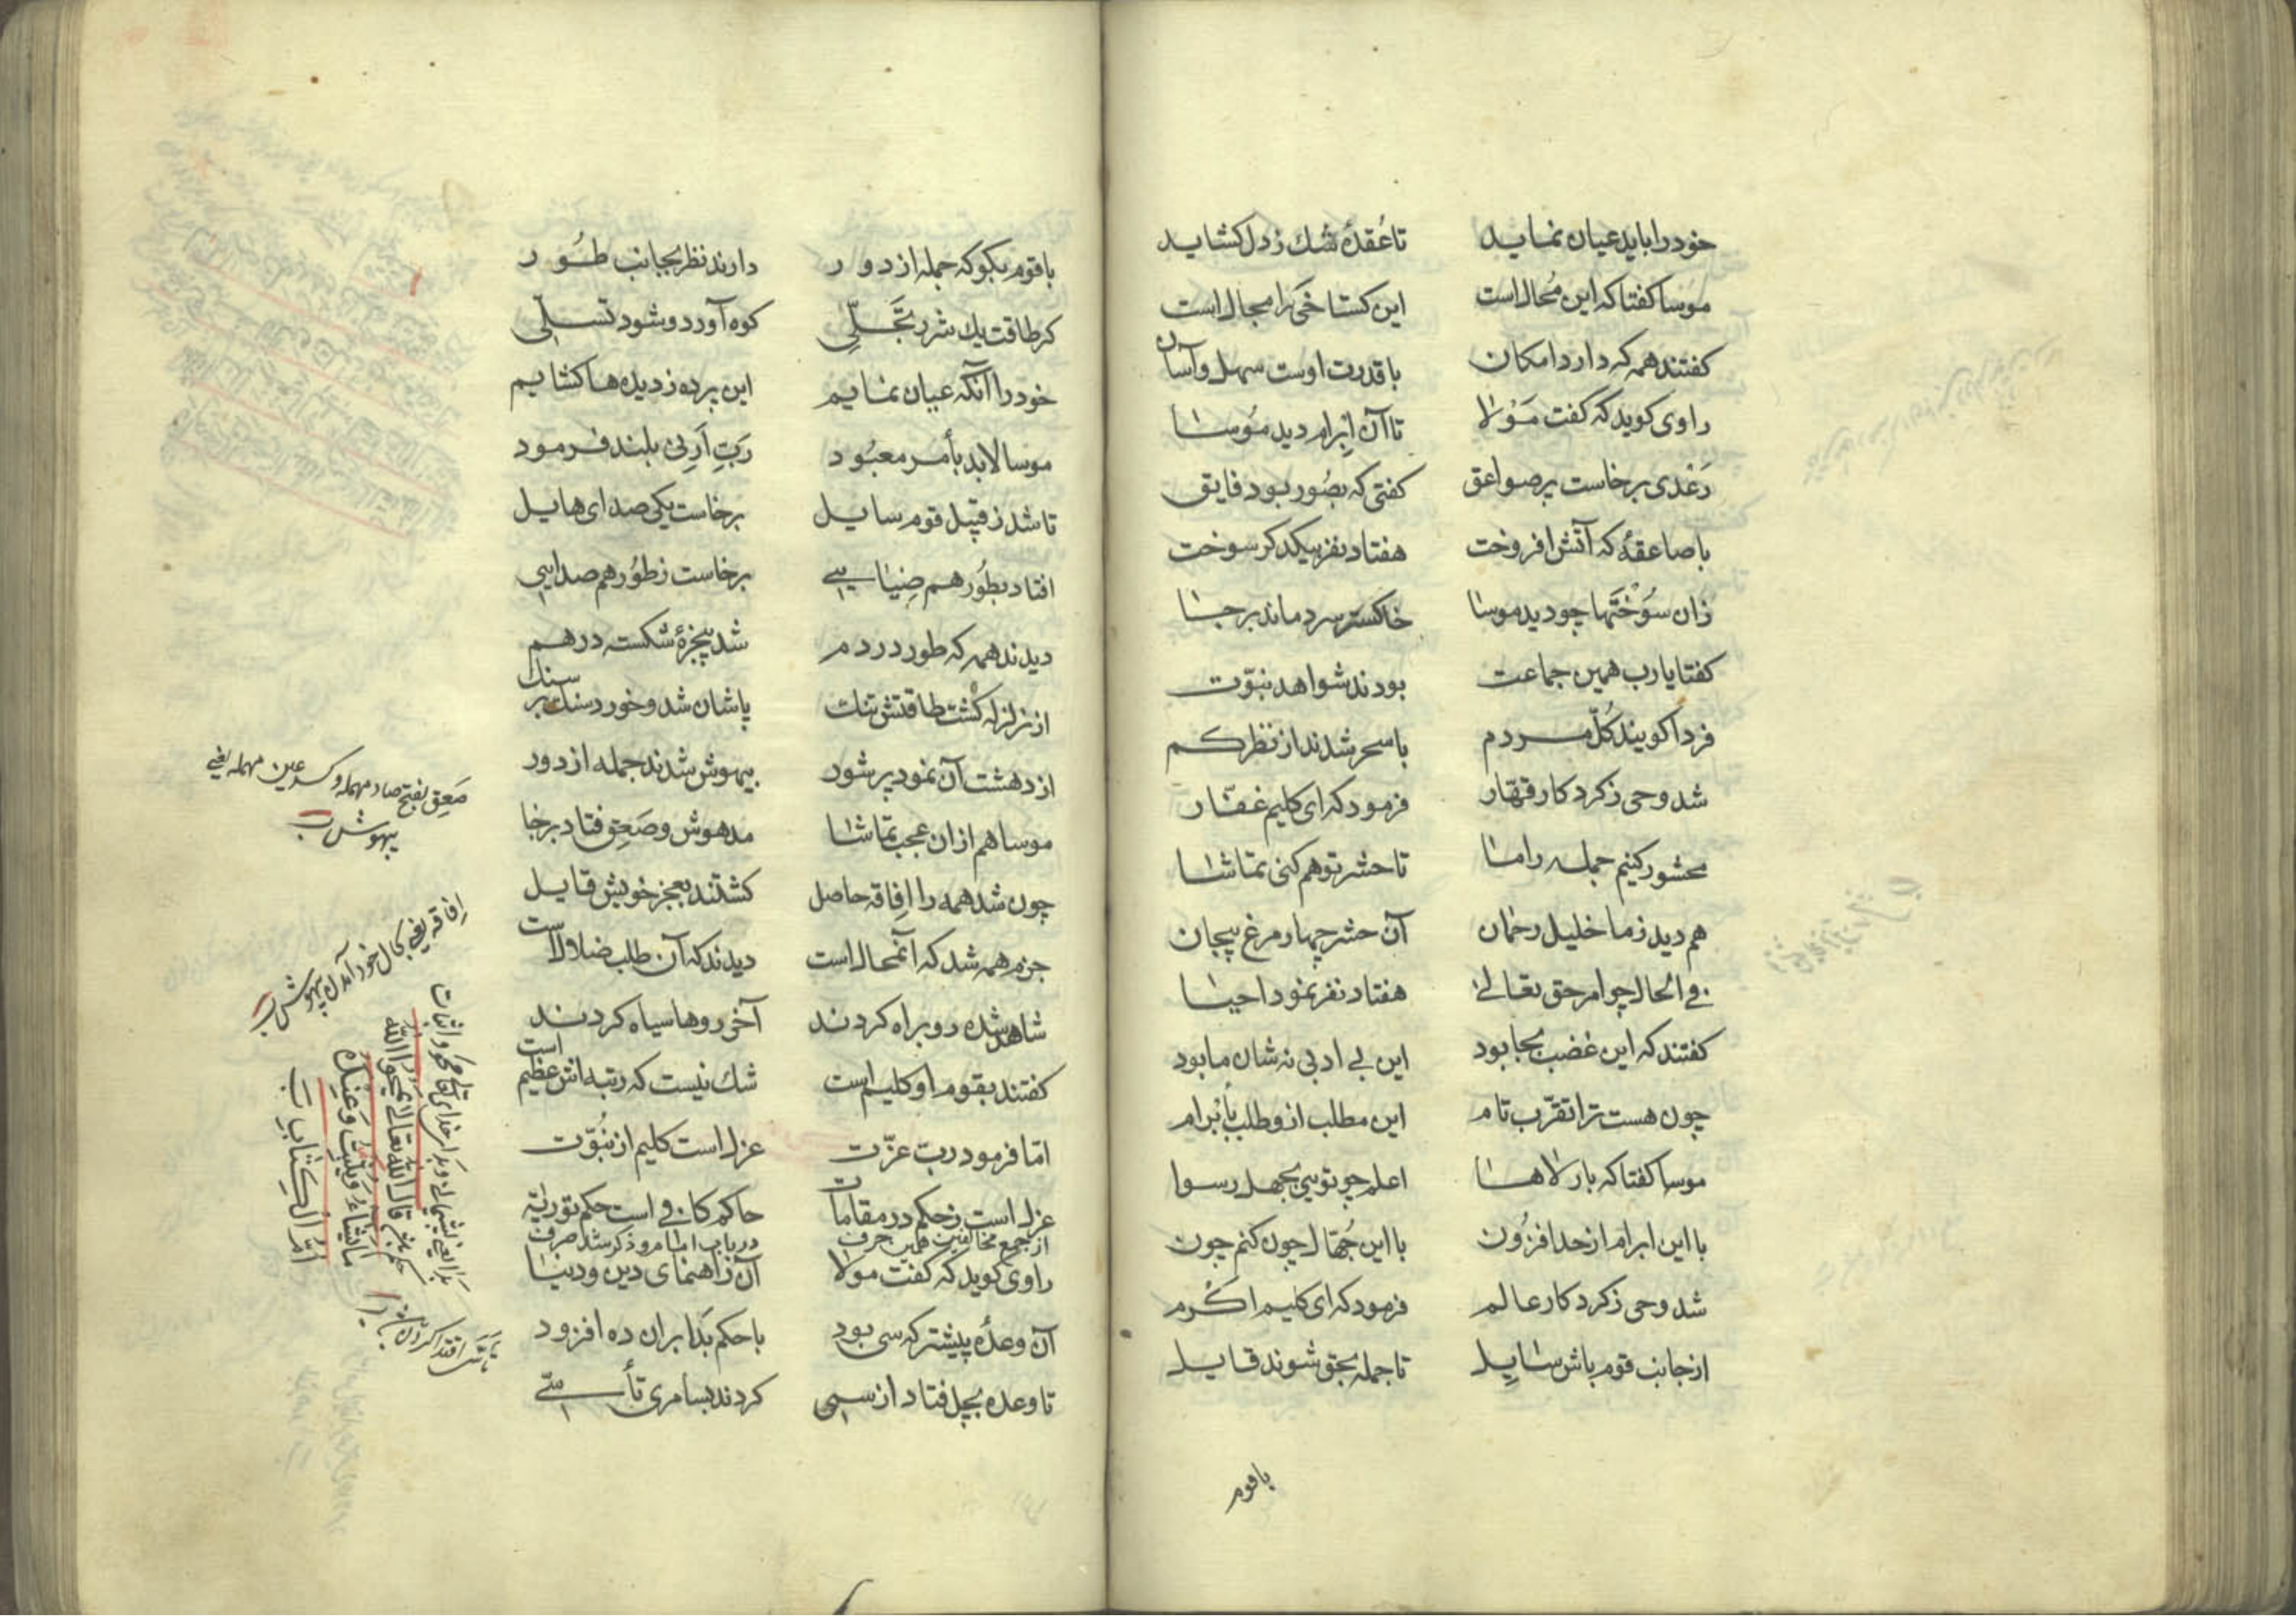 خود را باید عیان نماید تا عُقدهٔ شك ز دل کشاید
موسا کفتا که این مُحالست این کستاخی را مجالست
کفتند همه که دارد امکان با قدرت اوست سهل و آسان
راوی کوید که کفت مَوْلا تا آن اِبرام دید مُوسا
رَعْدی برخاست پر صواعق کفتی که بصُور بود فایق
با صاعقهٔ که آتش افروخت هفتاد نفر بیکدکر سوخت
زان سُوْخْتَها چو دید موسا خاکستر سرد ماند بر جا
کفتا یا رب همین جماعت بودند شواهد نبوّت
فردا کویند کُلّ مردم با سحر شدند از نظر کم
شد وحی ز کردکار قهّار فرمود که ای کلیم غفّار
محشور کنیم جمله را ما تا حشر تو هم کنی تماشا
هم دید ز ما خلیل رحمان آن حشر چهار مرغ بیجان
فی الحال چو امر حق تعالی هفتاد نفر نمود احیا
کفتند که این غضب بجا بود این بی ادبی نه شان ما بود
چون هست ترا تقرّب تام این مطلب ازو طلب بأبرام
موسا کفتا که بار الاها اعلم چو تویی بجهل رسوا
با این ابرام از حد افزُون با این جُهّال چون کنم چون
شد وحی ز کردکار عالم فرمود که ای کلیم اکرم
از جانب قوم باش سایِل تا جمله بحق شوند قایل
باقوم
با قوم بکو که جمله از دور دارند نظر بجانب طُور
کر طاقت یك شرر تجَلّی کوه آورد و شود تسلّی
خود را آنکه عیان نمایم این پرده ز دیده ها کشایم
موسا لابد بأمر معبُود رَبِّ اَرِنی بلند فرمود
تا شد ز قِبَل قوم سایل برخاست یکی صدای هایل
افتاد بطُور هم ضِیایی برخاست ز طُور هم صدایی
دیدند همه که طور در دم شد پنجرهٔ شکسته درهم
از زلزله کشت طاقتش تنك پاشان شد و خورد سنك بر سنك
از دهشت آن نمود پر شور بیهوش شدند جمله از دور
موسا هم از ان عجب تماشا مدهوش و صَعِق فتاد بر جا
چون شد همه را اِفاقه حاصل کشتند بعجز خویش قایل
جزم همه شد که آنمحالست دیدند که آن طلب ضلالست
شاهد شده رو براه کردند آخر روها سیاه کردند
کفتند بقوم او کلیم است شك نیست که رتبه اش عظیم است
امّا فرمود ربّ عزّت عزل است کلیم از نُبوّت
عزل است ز حکم در مقامات حاکم کافی است حکم توریة
از جمع مخالفین همین حرف در باب امام رو ذکر شد صرف
راوی کوید که کفت مولا آن راهنمای دین و دنیا
آن وعدهٔ پیشتر که سی بود با حکم بَدا بران ده افزود
تا وعده بچل فتاد از سی کردند بسامری تأسّی
صَعِق بفتح صاد مهمله و کسر عین مهمله یعنی
بیهوش
اِفاقه یعنی بحال خود آمدن بیهوش
قال الله تعالی یمحوا الله
ما یشاء و یثبت و عنده
اُمّ الکتاب